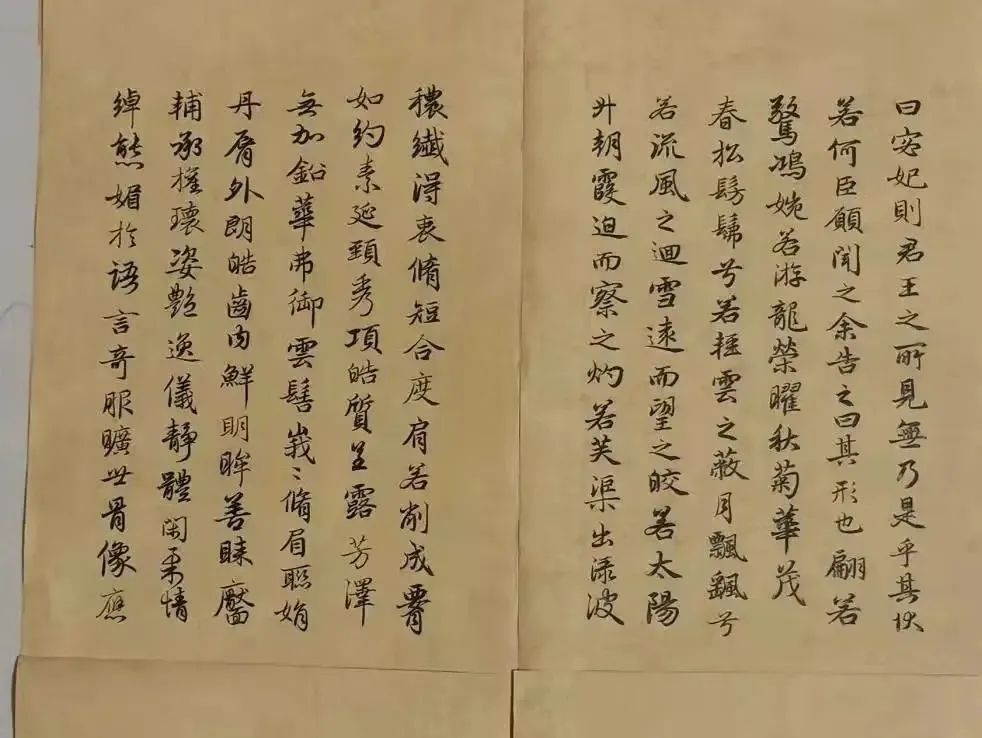 曰宓妃則君王之所見無乃是乎其狀
若何臣願聞之余告之曰其形也翩若
驚鴻婉若游龍榮曜秋菊華茂
春松髣髴兮若輕雲之蔽月飄颻兮
若流風之迴雪遠而望之皎若太陽
升朝霞迫而察之灼若芙渠出淥波
穠纖得衷脩短合度肩若削成腰
如約素延頸秀項皓質呈露芳澤
無加鉛華弗御雲髻峩〻脩眉聯娟
丹脣外朗皓齒內鮮明眸善睞靨
輔承權瓌姿艷逸儀靜體閑柔情
綽態媚於語言奇服曠世骨像應